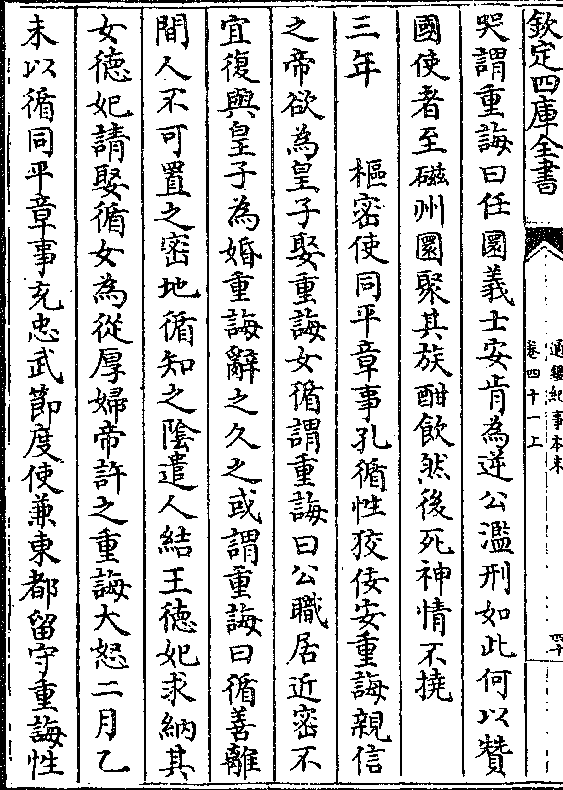 欽定四庫全書
通鑑紀事本末
卷四十一上
哭謂重誨曰任圜義士安肯為逆公濫刑如此何以贊
國使者至磁州圜聚其族酣飲然後死神情不撓
三年　樞密使同平章事孔循性狡佞安重誨親信
之帝欲為皇子娶重誨女循謂重誨曰公職居近密不
宜復與皇子為婚重誨辭之久之或謂重誨曰循善離
間人不可置之密地循知之陰遣人結王德妃求納其
女德妃請娶循女為從厚婦帝許之重誨大怒二月乙
未以循同平章事充忠武節度使兼東都留守重誨性